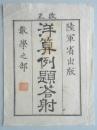 改正
陸軍省出版
洋算例題答附
數學之部